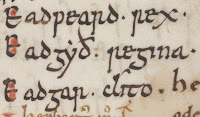 Eadƿeard · rex ·
Eadgẏð · regina ·
Eadgar · clito · he